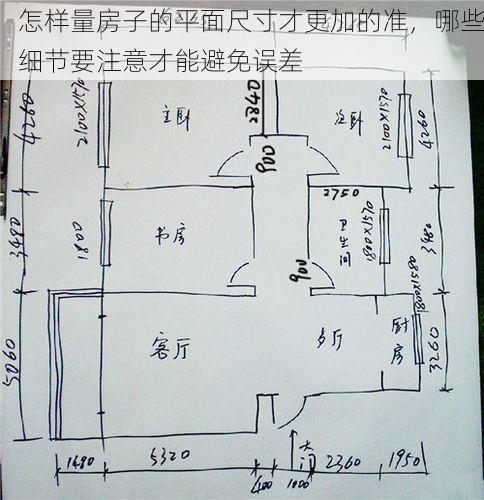 怎样量房子的平面尺寸才更加的准，哪些
细节要注意才能避免误差
4260
2100X1570
主卧
2840
次卧
2100X1570
4260
900
900
2750
3480
1800
书房
卫生间
1800X1570
3480
5060
客厅
多厅
厨房
3260
1480
5320
400
大门
1000
2360
1950